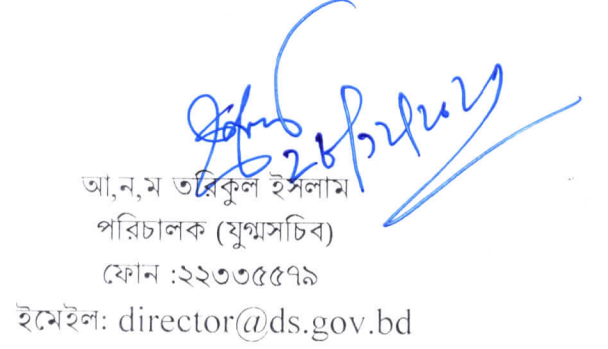 ২৮/১২/২০২৩
আ,ন,ম তরিকুল ইসলাম
পরিচালক (যুগ্মসচিব)
ফোন :২২৩৩৫৫৭৯
ইমেইল: director@ds.gov.bd